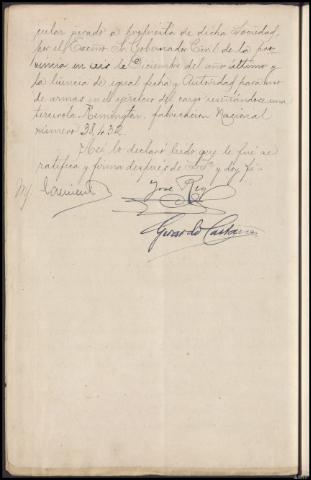 cular jurado a propuesta de dicha Sociedad,
por el Excmo Sr Gobernador Civil de la pro
vincia en seis de Diciembre del año último y
la licencia de igual fecha y Autoridad para uso
de armas en el ejercicio del cargo reseñándose una
tercerola Remington, fabricacion Nacional
número 38,432.
Así lo declaró leido que le fué se
ratifica y firma despues de S.Sª y doy fé.
José Rey
Gerardo